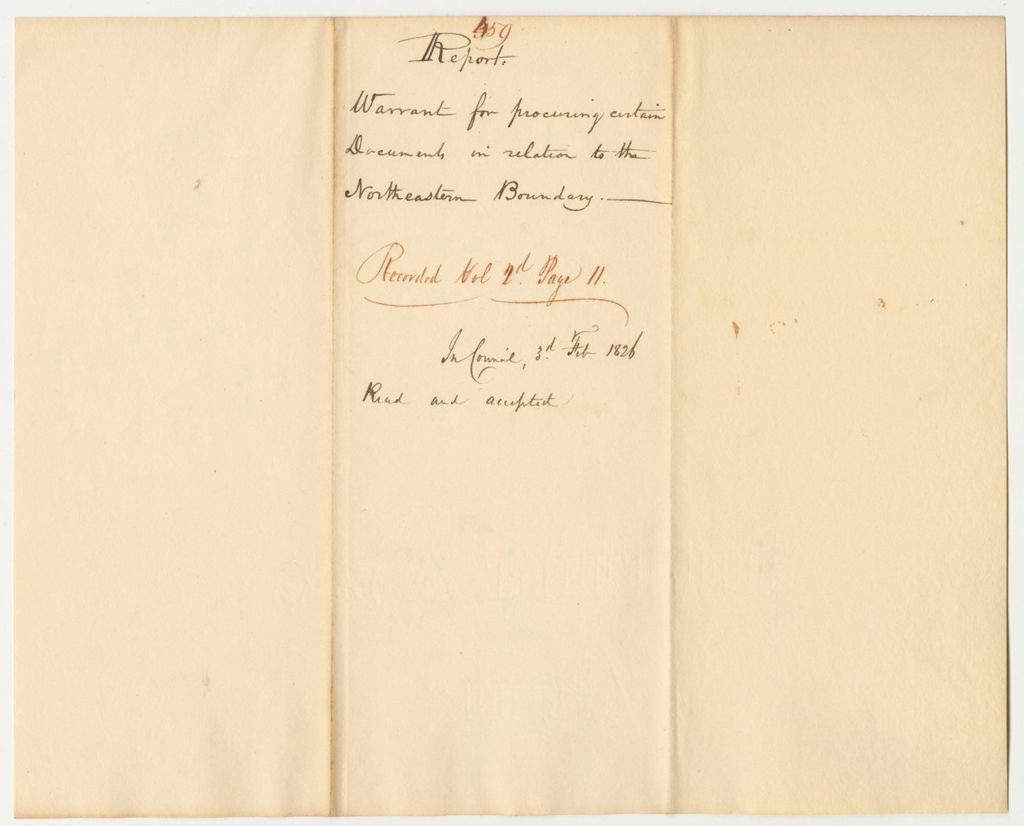 459
Report.
Warrant for procuring certain
Documents in relation to the
Northeastern Boundary.
Recorded Vol 2d. Page 11.
In Council, 3d. Feb 1826
Read and accepted